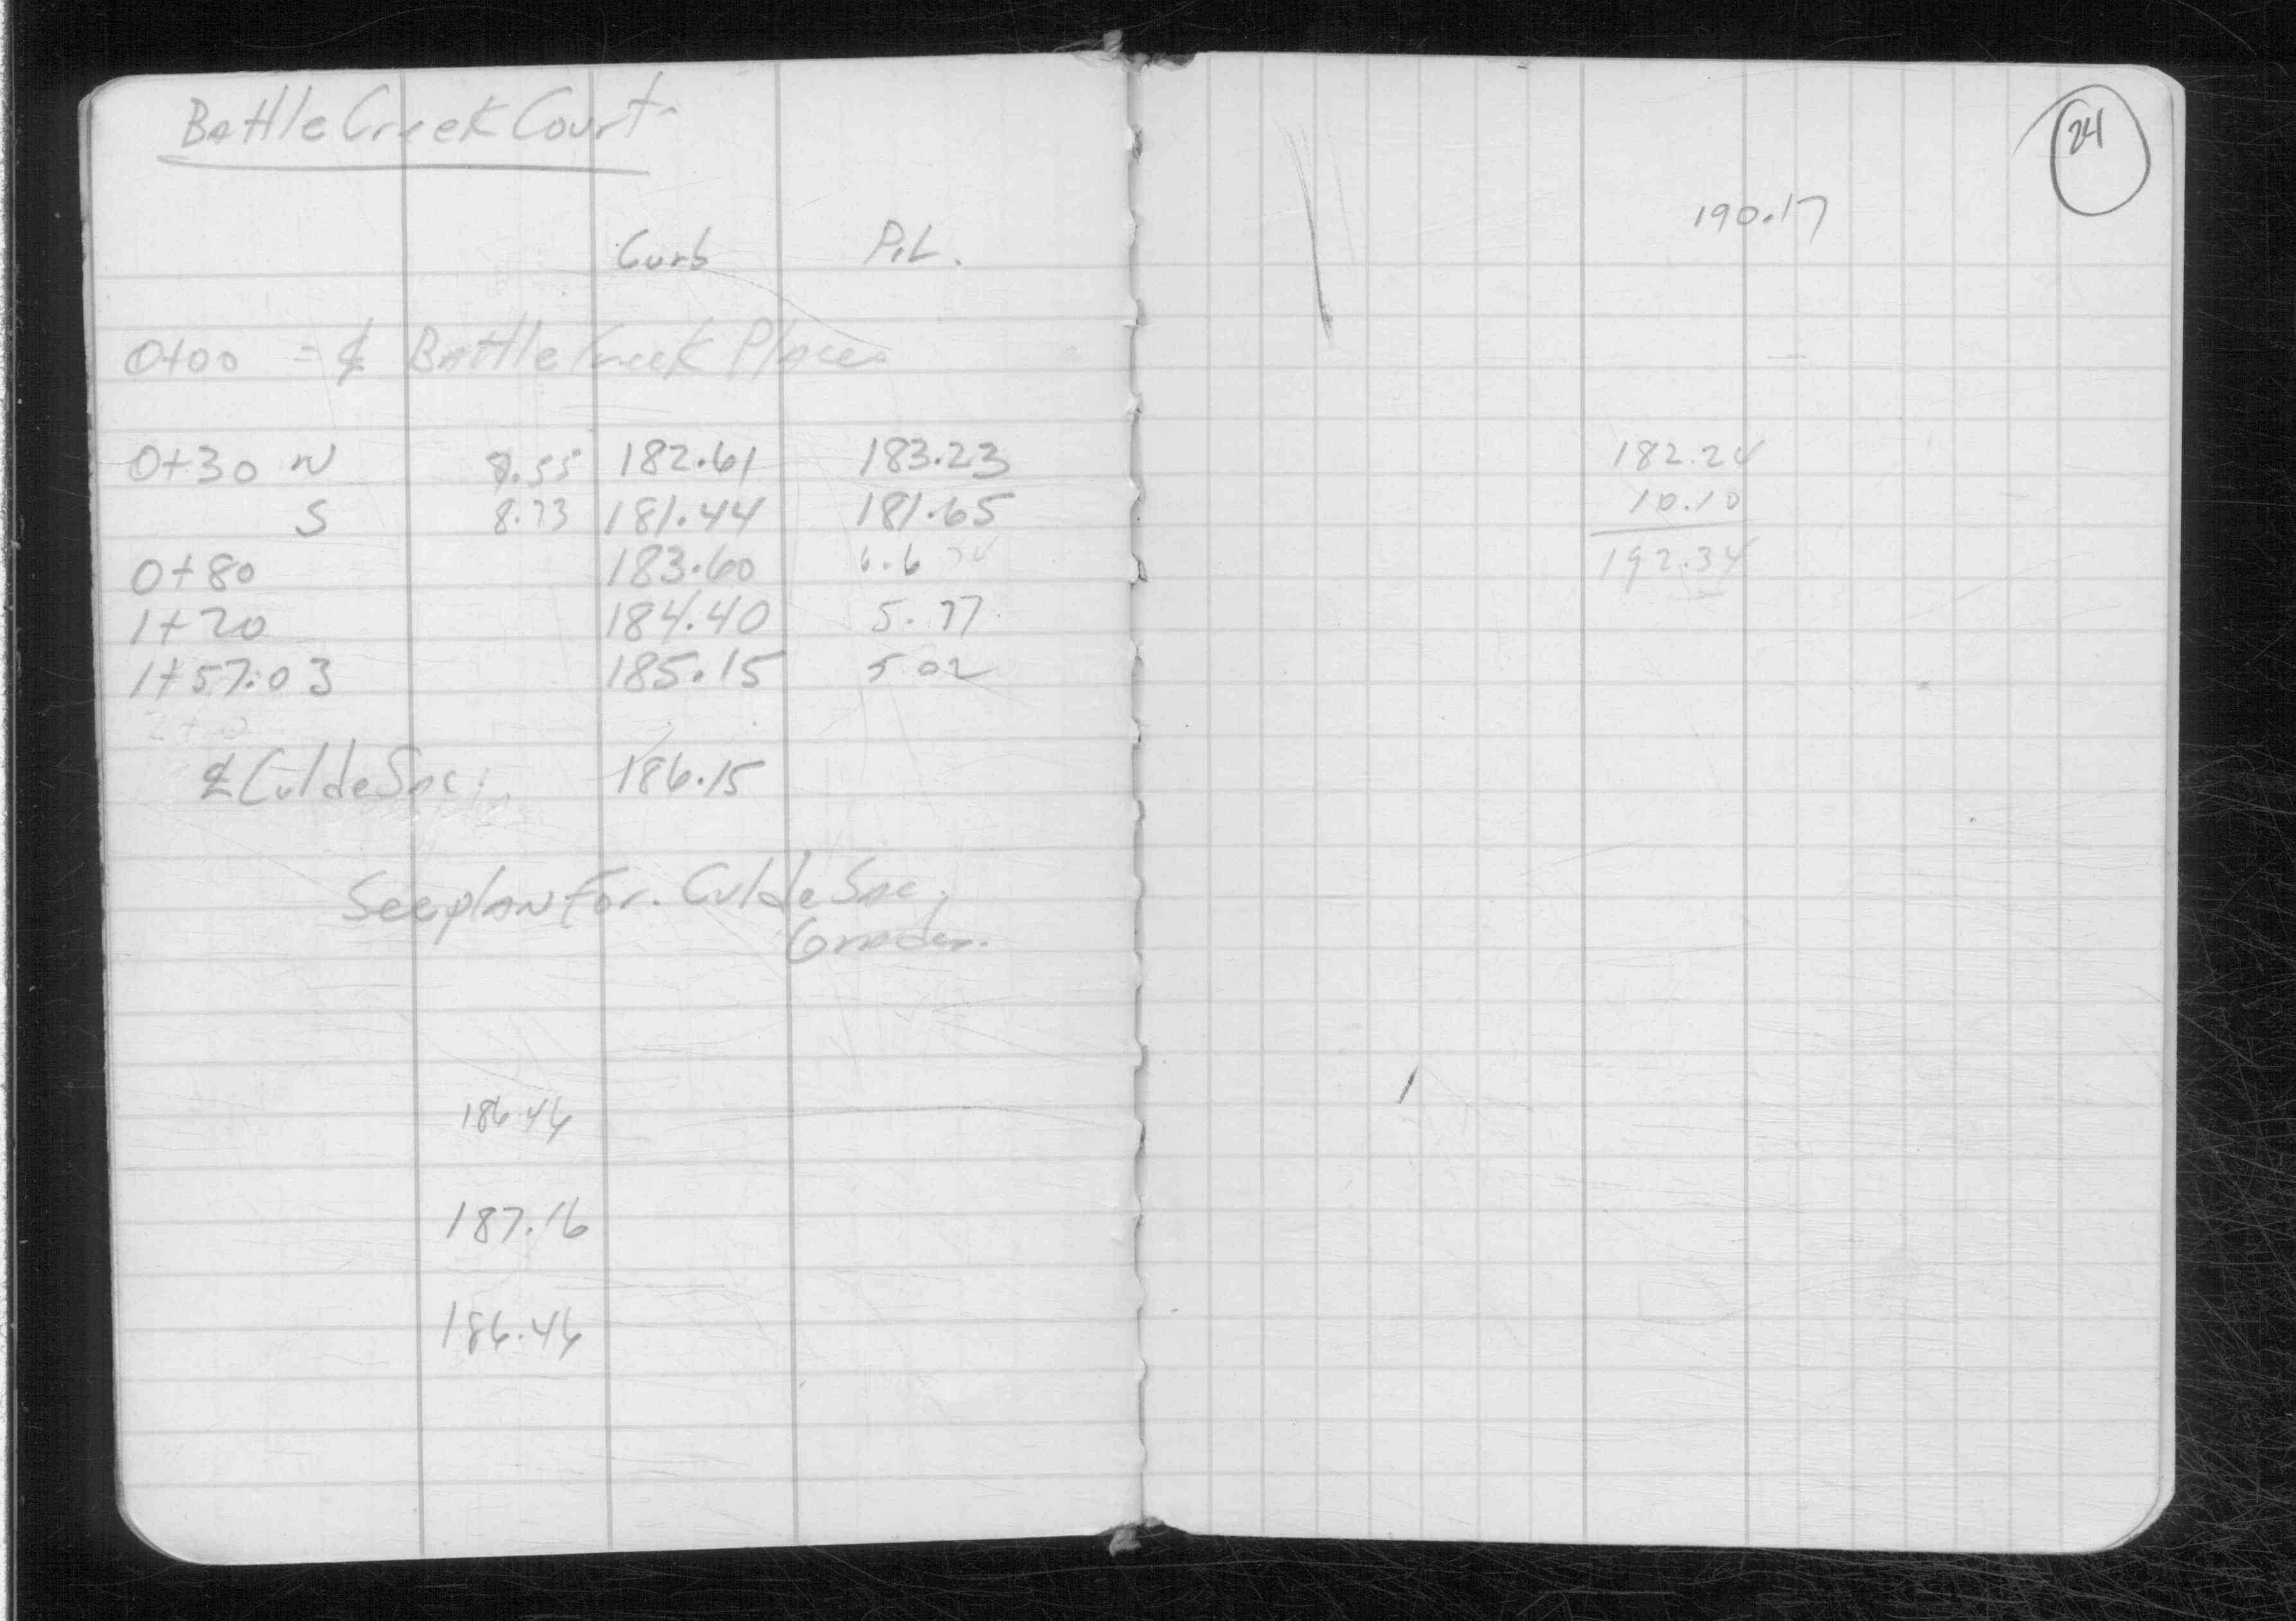 Battle Creek Court
Curb P.L.
0+00 = ℄ Battle Creek Place
0+30 N 7.55 182.61 183.23
S 8.73 181.44 181.65
0+80 183.60
1+20 184.40 5.77
1+57.03 185.15 5.02
℄ Cul de Sac. 186.15
See plan For. Cul de Sac.
Grades.
186.46
187.16
186.46
24
190.17
182.24
10.10
192.34